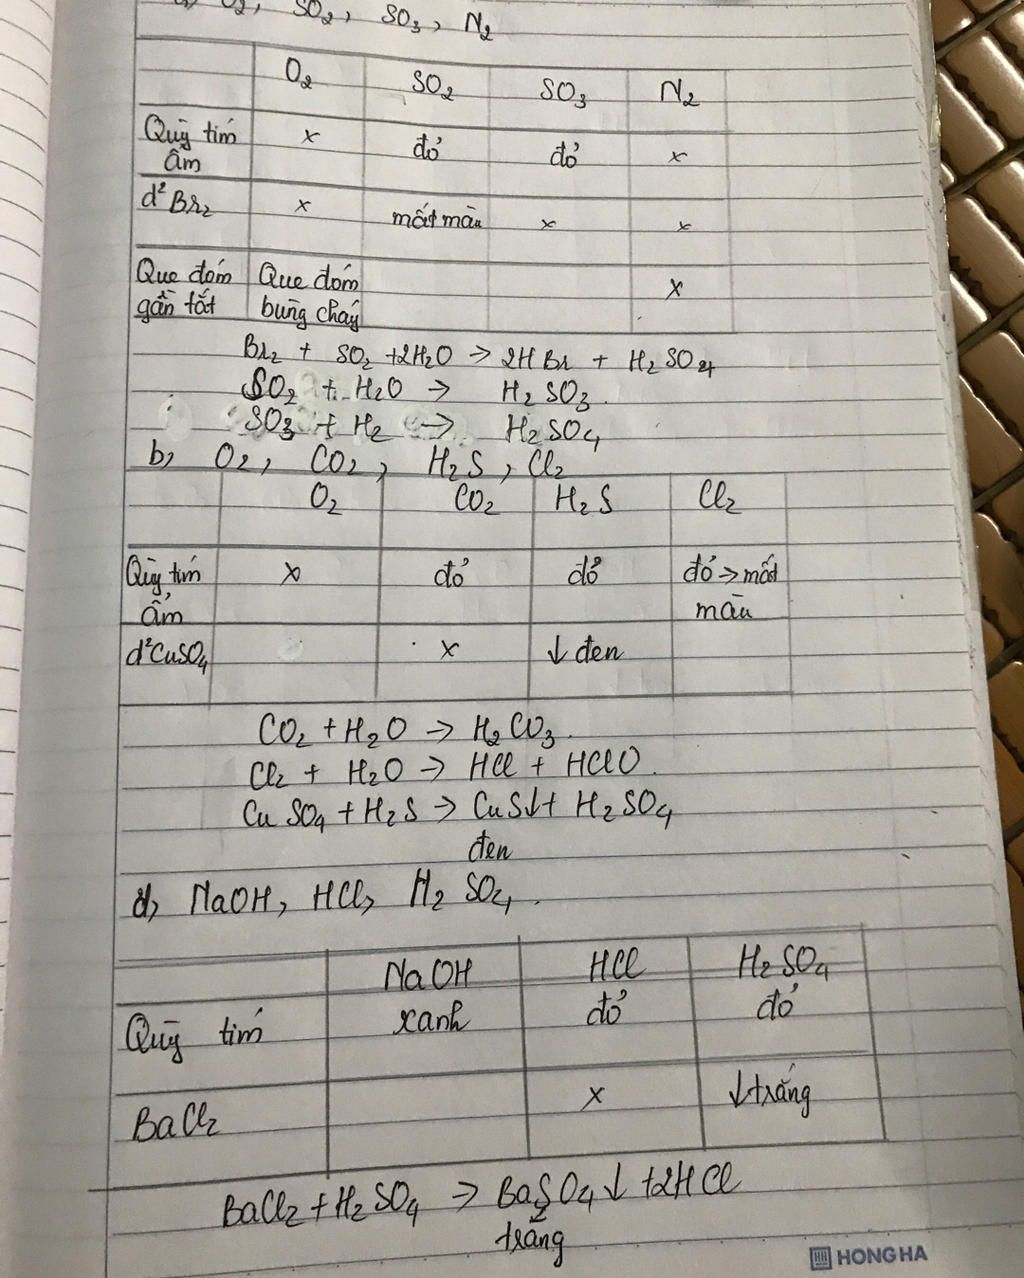 O2, SO2, SO3, N2
O2 SO2 SO3 N2
Quỳ tím ẩm x đỏ đỏ x
d² Br2 x mất màu x x
Que đóm gần tắt Que đóm bùng cháy x
Br2 + SO2 + 2H2O → 2HBr + H2SO4
SO2 + H2O → H2SO3.
SO3 + H2 → H2SO4
b, O2, CO2, H2S, Cl2
O2 CO2 H2S Cl2
Quỳ tím ẩm x đỏ đỏ đỏ → mất màu
d² CuSO4 x ↓ đen
CO2 + H2O → H2CO3.
Cl2 + H2O → HCl + HClO.
CuSO4 + H2S → CuS↓ + H2SO4
đen
d, NaOH, HCl, H2SO4.
NaOH HCl H2SO4
Quỳ tím xanh đỏ đỏ
BaCl2 x ↓ trắng
BaCl2 + H2SO4 → BaSO4↓ + 2HCl
trắng
HONG HA